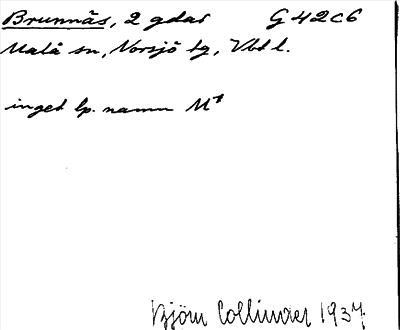 Brunnäs, 2 gdar G42c6
Malå sn, Norsjö tg, Vbt l.
inget lp. namn Mt
Björn Collinder 1937.